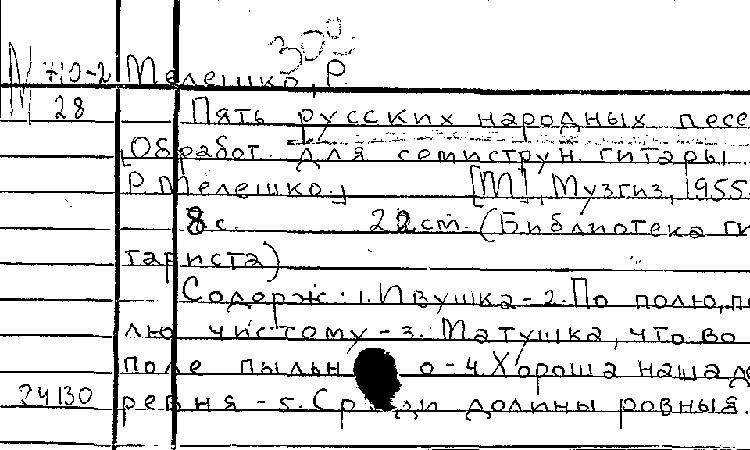 300
М 710-2 Мелешко, Р.
28 Пять русских народных песе
[Обработ. для семиструн. гитары
Р. Мелешко.] [М], Музгиз, 1955.
8 с. 22 см. (Библиотека ги
тариста)
Содерж: 1. Ивушка - 2. По полю, по
лю чистому - 3. Матушка, что во
поле пыльно - 4. Хороша наша де
24130 ревня - 5. Среди долины ровныя.